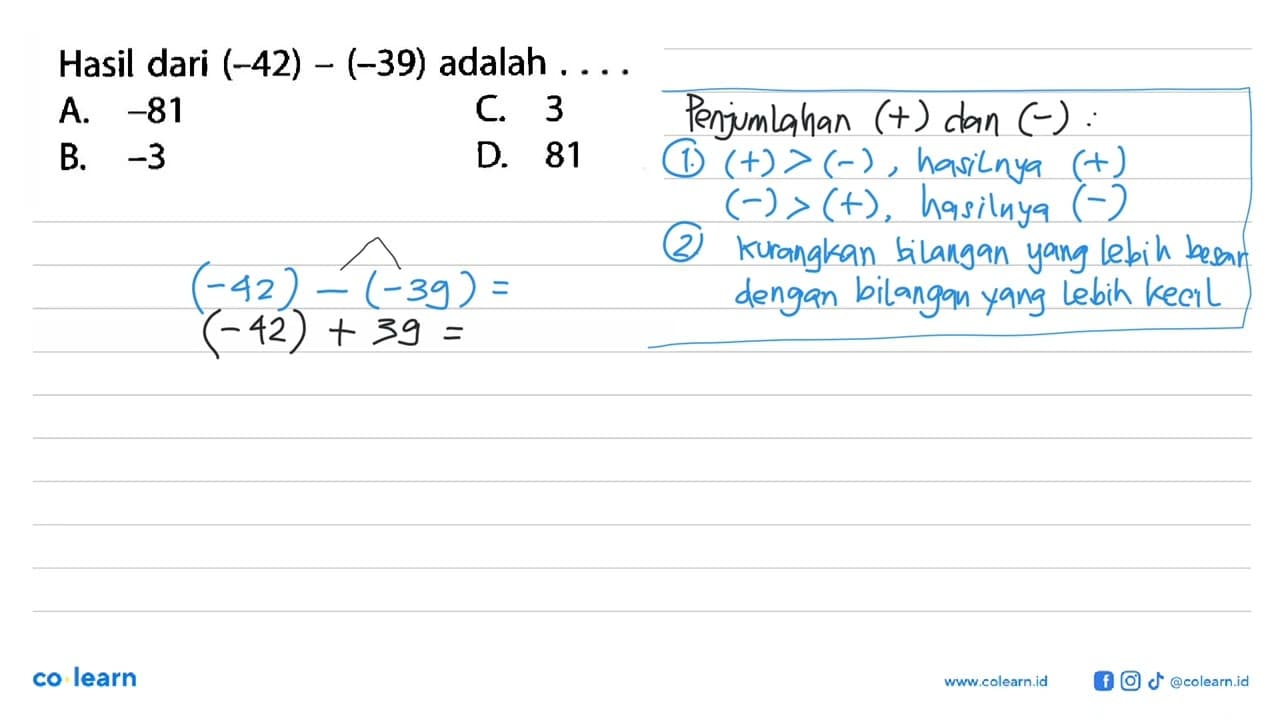 Hasil dari (–42) – (–39) adalah . . . .
A. –81
C. 3
B. –3
D. 81
Penjumlahan (+) dan (-) :
1. (+) > (-), hasilnya (+)
(-) > (+), hasilnya (-)
2 kurangkan bilangan yang lebih besar
dengan bilangan yang lebih kecil
(-42) - (-39) =
(-42) + 39 =
co learn
www.colearn.id
@colearn.id